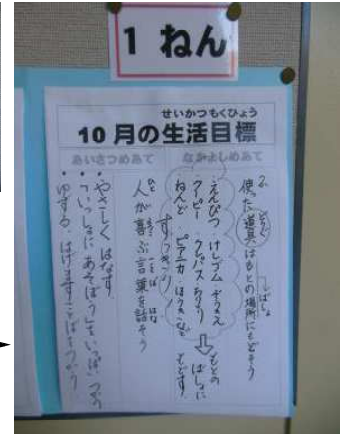 1 ねん
せいかつもくひょう
10月の生活目標
なかよしめあて
あいさつめあて
2. 使った道具はもとの場所にもどそう
どうぐ
ばしょ
・えんぴつ・けしゴム・ぞうきん
・クーピー・クレパス・のり
ねんど ピアニカ・ほうきなど
もとの
ばしょに
もどす。
すっきり
人が喜ぶ言葉を話そう
ひと よろこ ことば はな
・やさしくはなす。
・「いっしょにあそぼう」をいっぱいつかう
・ゆずる、はげますことばをつかう